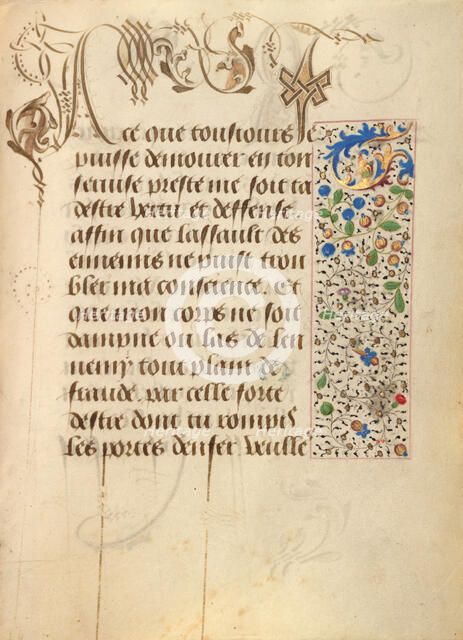 A ce que tousiours ie
puisse demourer en ton
seruise preste me soit ta
destre vertu et deffense
affin que lassault des
ennemis ne puist trou
bler ma conscience. Et
que mon corps ne soit
dampne ou las de len
nemy tout plain de
fraude. par celle forte
destre dont tu rompis
les portes denfer veulle